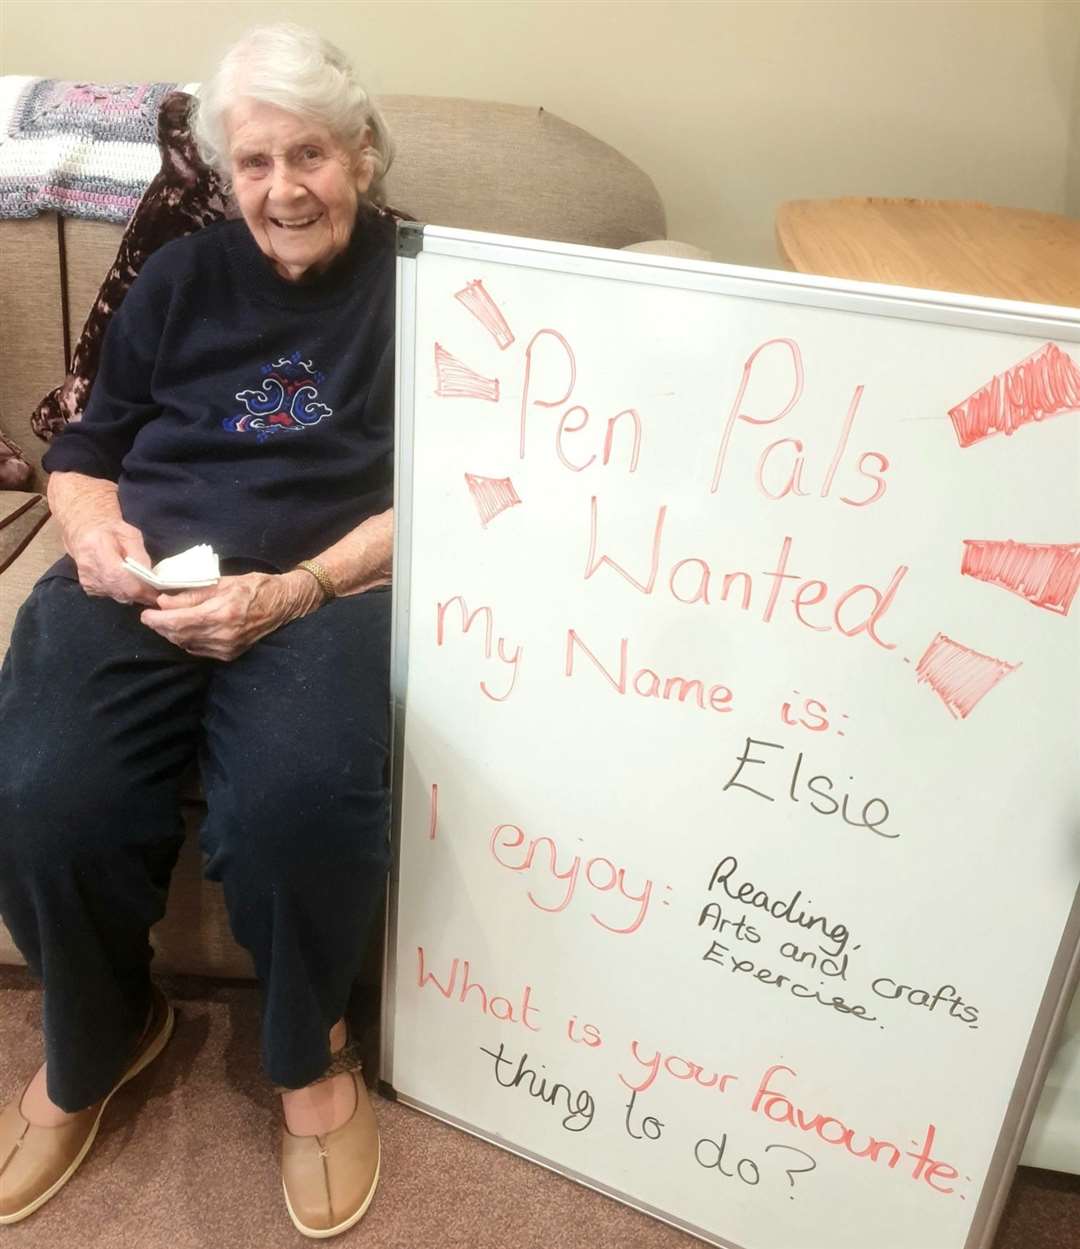 Pen Pals
Wanted.
My Name is:
Elsie
I enjoy: Reading,
Arts and crafts,
Exercise.
What is your favourite:
thing to do?